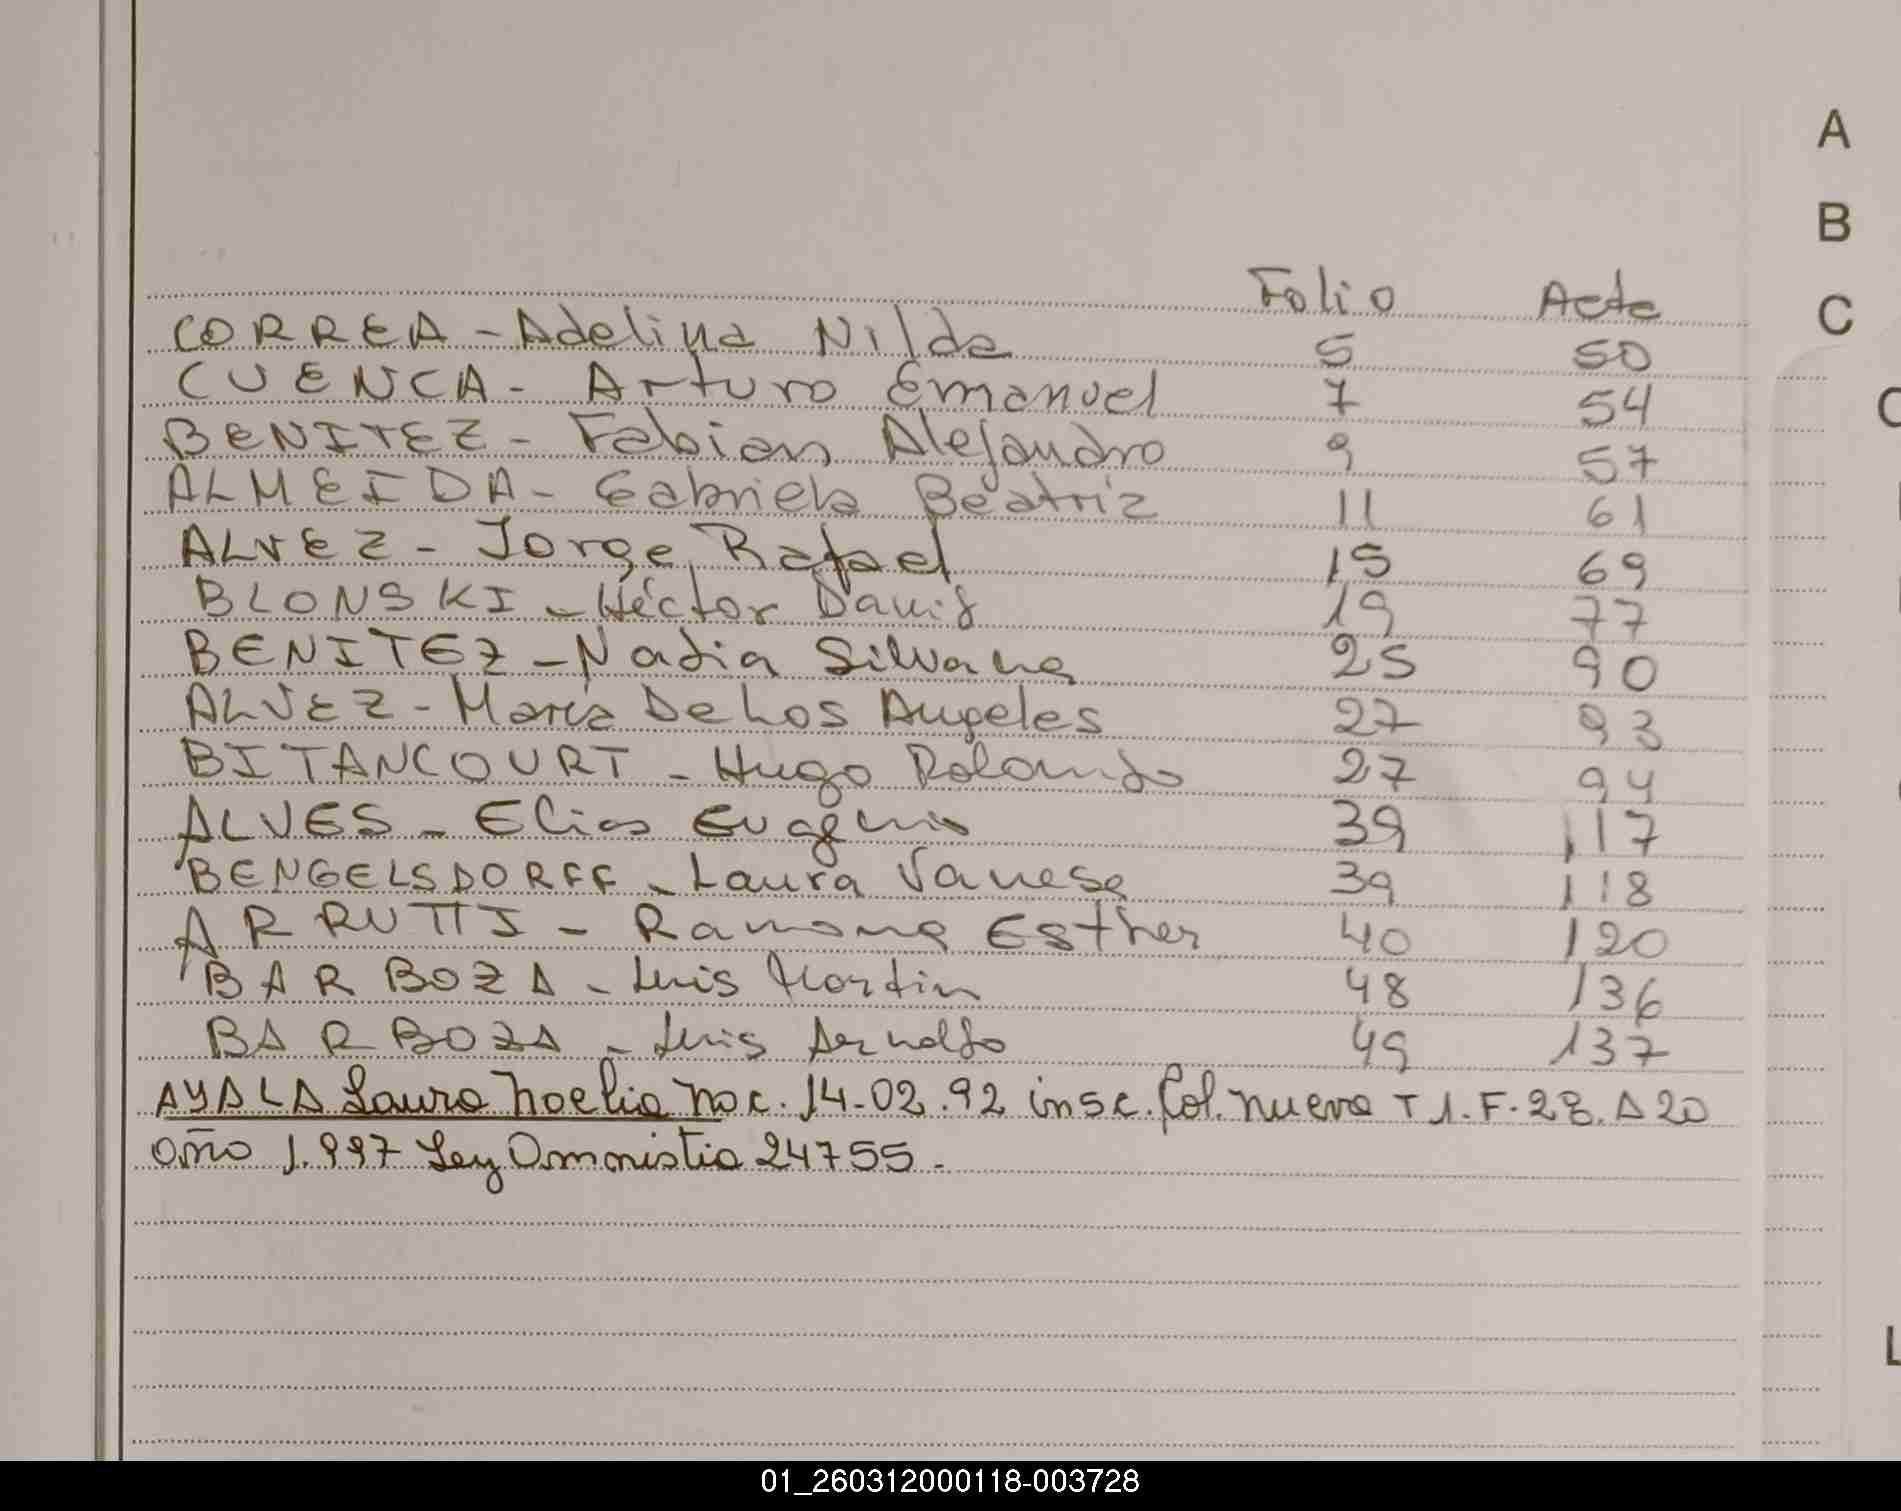 Folio Acta
CORREA - Adelina Nilda 5 50
CUENCA - Arturo Emanuel 7 54
BENITEZ - Fabian Alejandro 9 57
ALMEIDA - Gabriela Beatriz 11 61
ALVEZ - Jorge Rafael 15 69
BLONSKI - Héctor David 19 77
BENITEZ - Nadia Silvana 25 90
ALVEZ - María De Los Angeles 27 93
BITANCOURT - Hugo Rolando 27 94
ALVES - Elias Eugenio 39 117
BENGELSDORFF - Laura Vanesa 39 118
ARRUTTI - Ramona Esther 40 120
BARBOZA - Luis Martin 48 136
BARBOZA - Luis Arnoldo 49 137
AYALA Laura Noelia nac. 14-02.92 insc. Col. nueva T 1.F.28. A 20
año 1.997 Ley Amnistia 24755.
A
B
C
L
01_260312000118-003728